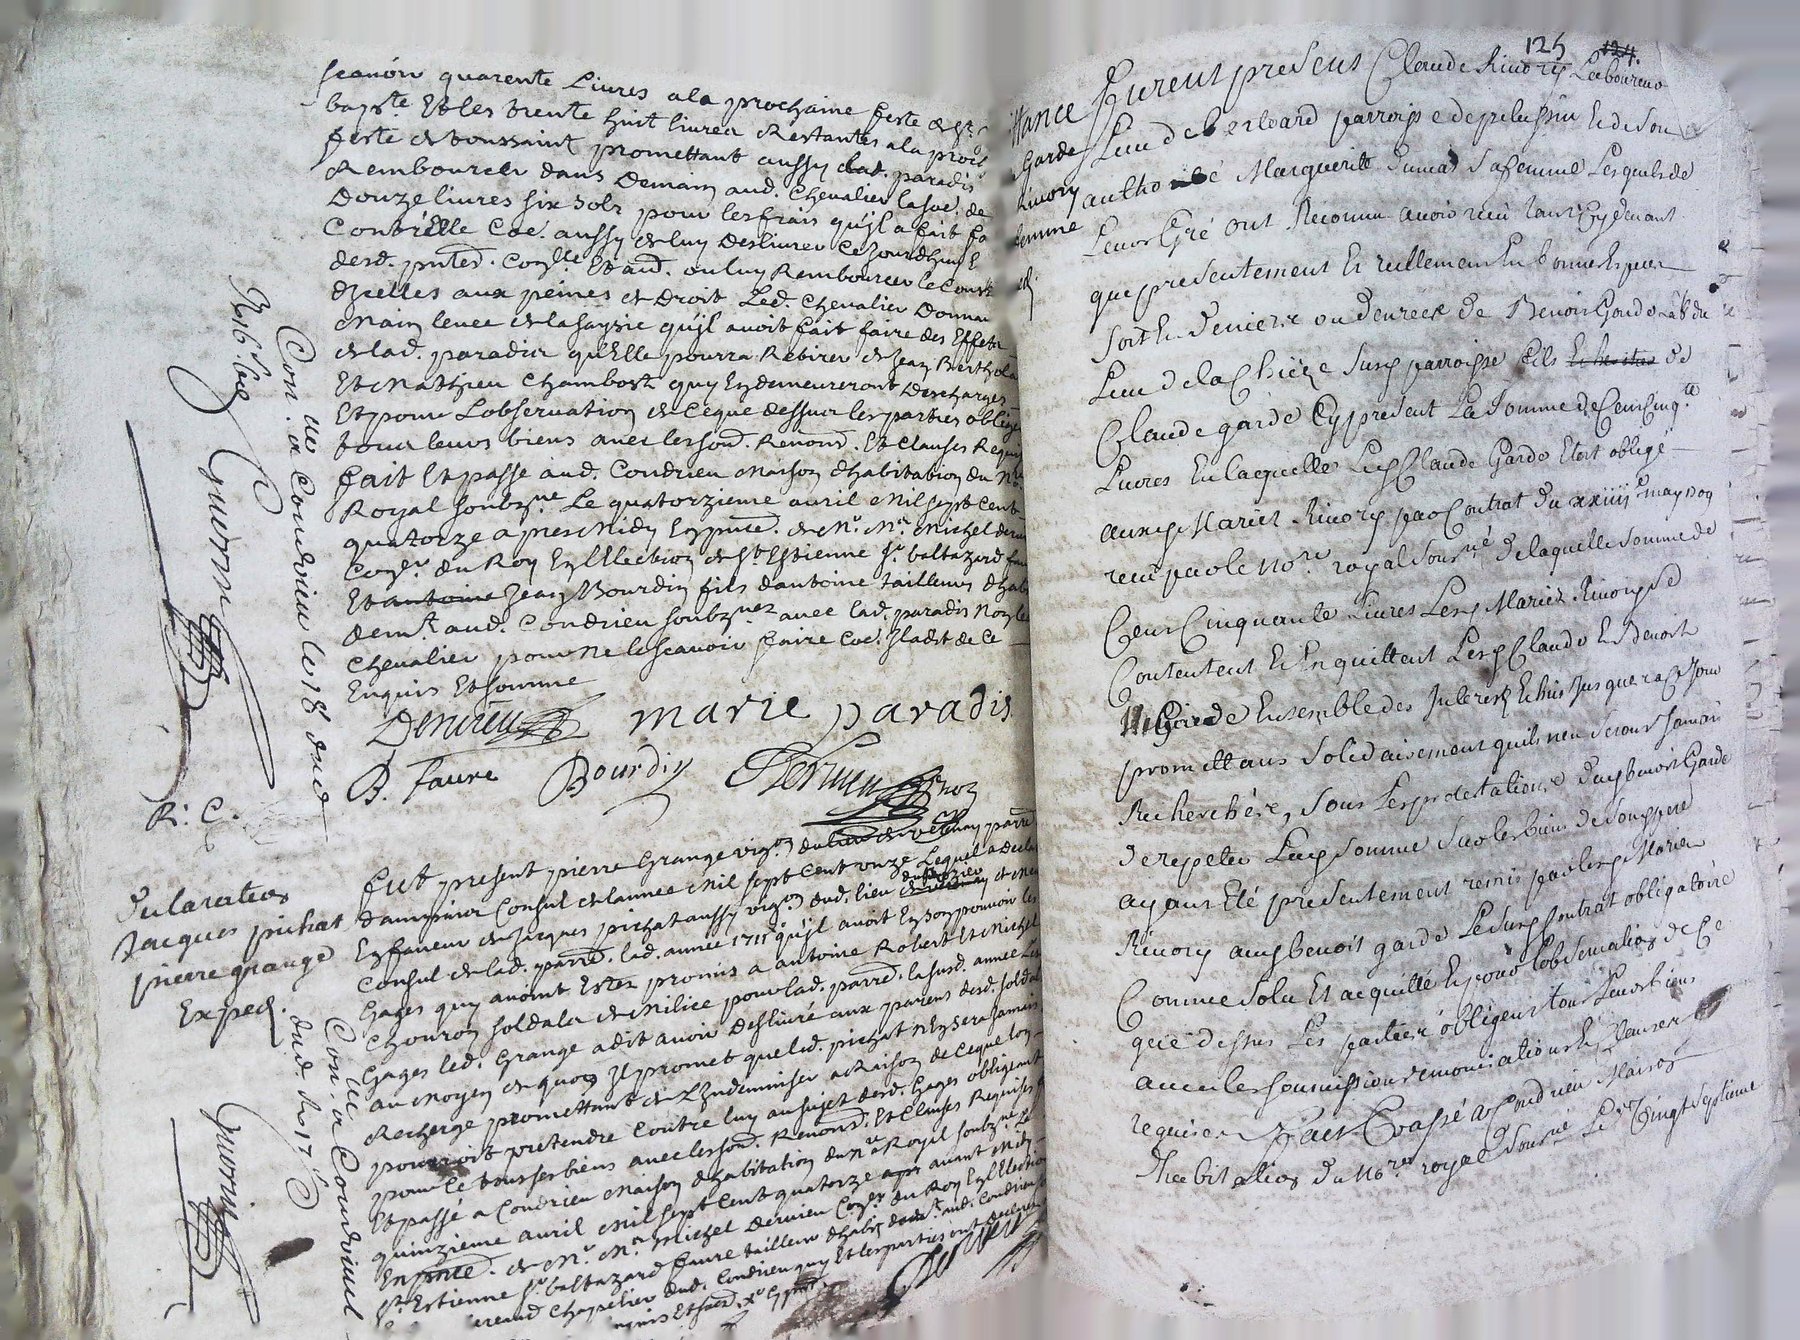 scavoir quarente Livres ala prochaine feste de St.
bapte. Et les trente huit livres Restantes ala proch
feste de toussaint promettant aussy lad. paradis
Rembourcer dans Demain aud. Chevalier la sue. de
Douze livres six sols pour les frais qu'jl a fait
Contr'Elle Coe. aussy de luy Deslivrer Cejourdhuy
desd. pntes. Et aud. ou luy Rembourcer le Coust
djcelles aux peines de Droit Led. Chevalier Donnan
main levee de la saysie qu'jl avoit fait faire des Effets
de lad. paradis qu'Elle pourra Retirer de Jean Berthola
Et Matthieu Chambost quy En demeureront Descharges
Et pour L'observation de Ceque dessus les parties oblige
tour leurs biens avec les soud. Renons. Et Clauses Requ
fait Et passé aud. Condrieu maison d'habitation du Nre
Royal soubzne. Le quatorzieme avril mil sept Cent
quatorze apres Midy En pnce. de Mr. Me. Michel dervi
Coner. du Roy En l'Election de St. Estienne Sr. baltazard fau
Et antoine Jean Bourdin fils d'antoine tailleur d'hab
demt. aud. Condrieu soubznez avec lad. paradis Non le
Chevalier pour ne le scavoir faire Coe. jl a dit de Ce
Enquis Et somme
Dervieu marie paradis
B. faure Bourdin
R. C.
Con. ... a Condrieu le 18e dud
Declaration
Jacques pichat
pierre grange
Exped.
Con. ... a Condrieu
dud. le 17e
fut present pierre Grange vigon. du lieu de parre
dampuis Consul de lannee mil sept Cent onze Lequel a decla
En faveur de Jacques pichat aussy vigon. dud. lieu
Consul de lad. parre. lad. annee 1711 qu'jl avoit En son pouvoir les
Gages quy avoint Estez promis a antoine Robert Et Michel
Chouron soldats de Milice pour lad. parre. la susd. annee Les
Gages led. Grange a dit avoir deslivré aux pariens desd. soldat
au moyen de quoy jl promet que led. pichat n'En sera Jamais
Recherge promettant de L'Endemniser a Raison de Ceque lon
pourroit pretendre Contre luy au sujet desd. Gages obligeant
pour Ce tous ses biens avec les soud. Renons. Et Clauses Requises
Et passé a Condrieu maison d'habitation du Nre Royal soubzne. Le
quinzieme avril mil sept Cent quatorze avant Midy
En pnce. de Mr. Me. Michel Dervieu Coner. du Roy En l'Election
St. Estienne Sr. baltazard faure tailleur d'habis demt. aud. Condrieu
Chapelier dud. Condrieu quy Et les parties ont declare
125 124
ttance
Garde
Rivory
femme
furent presens Claude Rivory Laboureur
Lieu de parroisse de pelussin Et de Son
authorité Marguerite Dumas Sa femme Lesquels de
Leur Gré ont Reconnu avoir receu tant Cy devant
que presentement Et reellement En bonnes Especes
Soit En Deniers ou denrées de Benoit Garde Labr. du
Lieu de la Chièze Susd parroisse fils de
Claude garde Cy present La Somme de Cent Cinqte
Livres En laquelle Led Claude Garde Etoit obligé
auxd Mariez Rivory par Contrat du xxiiiie may 1709
receu par le Nore. royal Sousné de laquelle Somme de
Cent Cinquante Livres Lesd Mariez Rivory Se
Contentent Et En quittent Lesd Claude Et Benoit
Garde Ensemble des Interests Echus Jusques a Ce Jour
promettans Solidairement quils n'en Seront Jamais
Recherchéz, Sous Les protestations dud benoit Garde
de repeter Lad Somme Sur les biens de Son pere
ayant Eté presentement remis par lesd Mariez
Rivory aud benoit garde Le Susd Contrat obligatoire
Comme Solu Et acquitté Et pour l'observation de Ce
que dessus Les parties obligent tous Leurs biens
avec les Soumissions renonciations Et Clauses
requises Fait Et passé a Condrieu Maison
d'habitation du Nore. royal Sousné Le Vingt Septieme